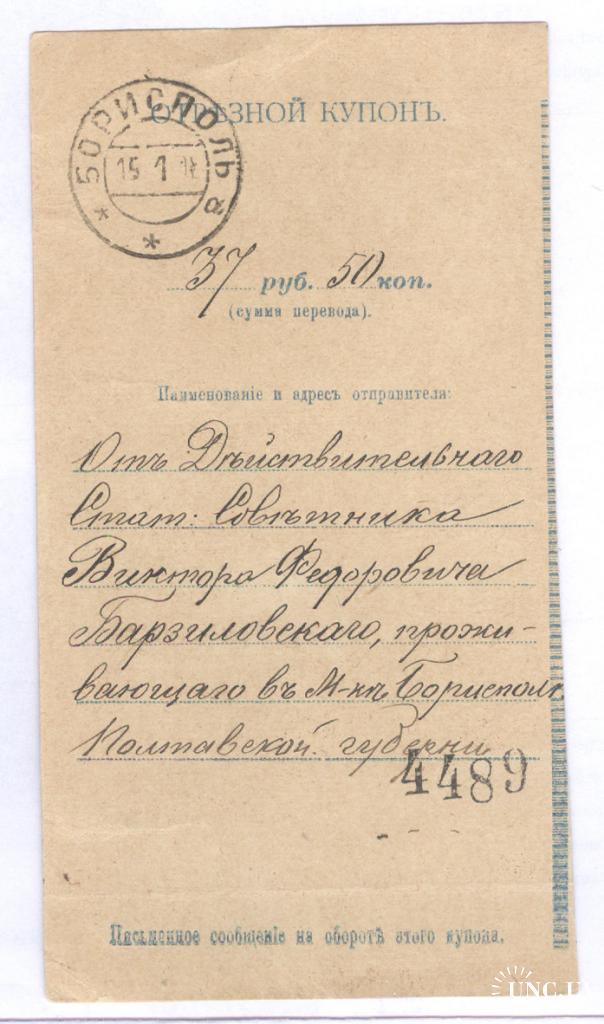 ОТРѢЗНОЙ КУПОНЪ.
БОРИСПОЛЬ а
15 1
37 руб. 50 коп.
(сумма перевода).
Наименованіе и адресъ отправителя:
Отъ Дѣйствительнаго
Стат: Совѣтника
Виктора Федоровича
Барзиловскаго, прожи-
вающаго въ М-кѣ Борисполѣ
Полтавской губерни
4489
Письменное сообщеніе на оборотѣ этого купона.